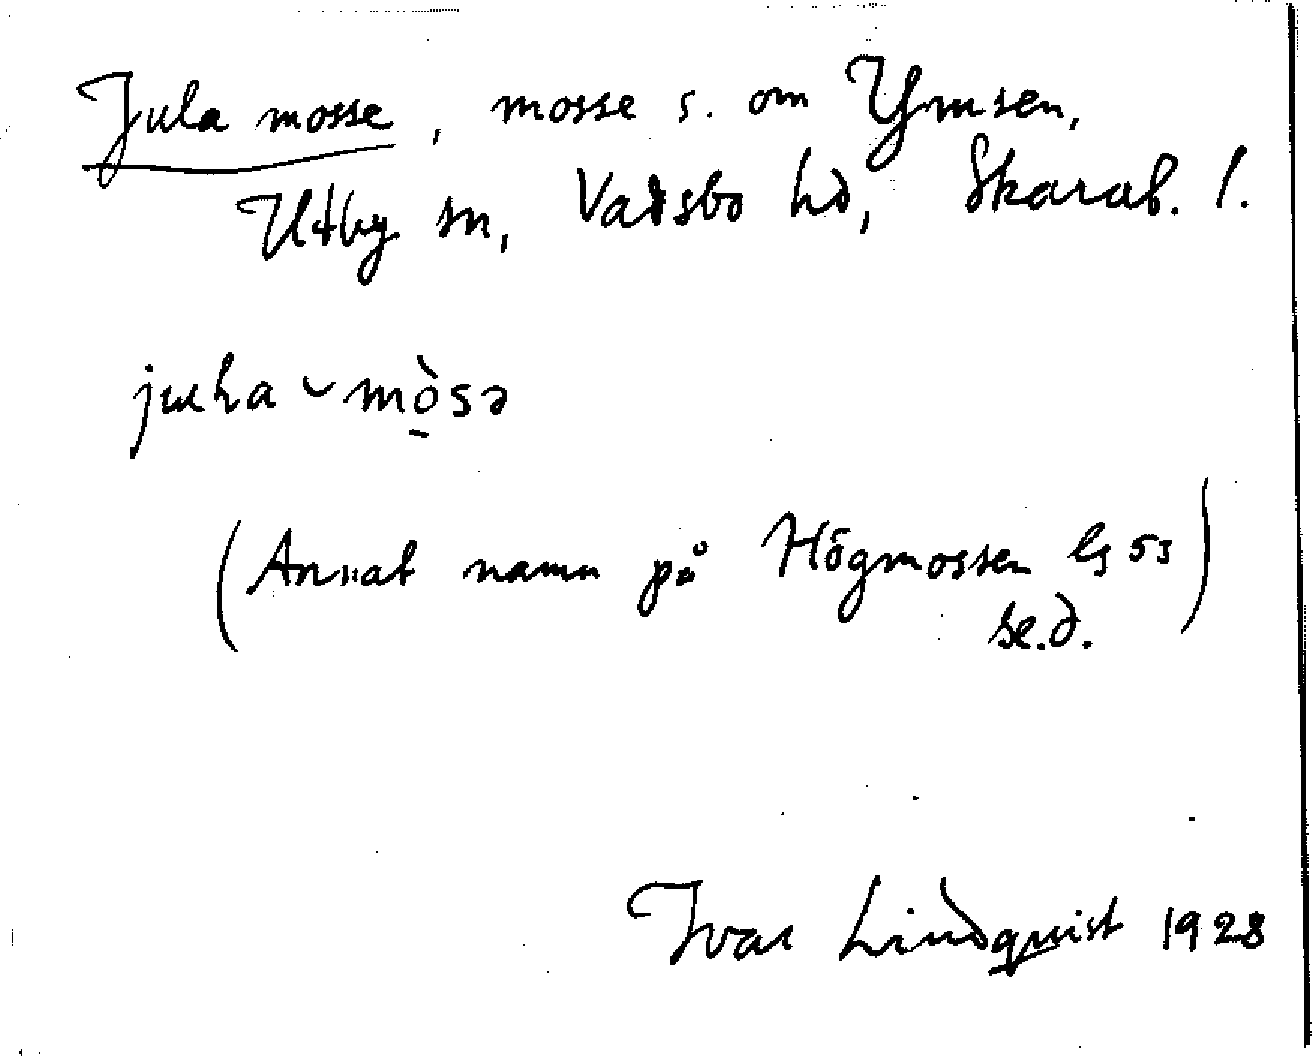 Jula mosse, mosse s. om Ymsen,
Utby sn, Vadsbo hd, Skarab. l.
juLa ˘ mò̱sə
(Annat namn på Högmossen Gs 53)
se.d.
Ivar Lindquist 1928